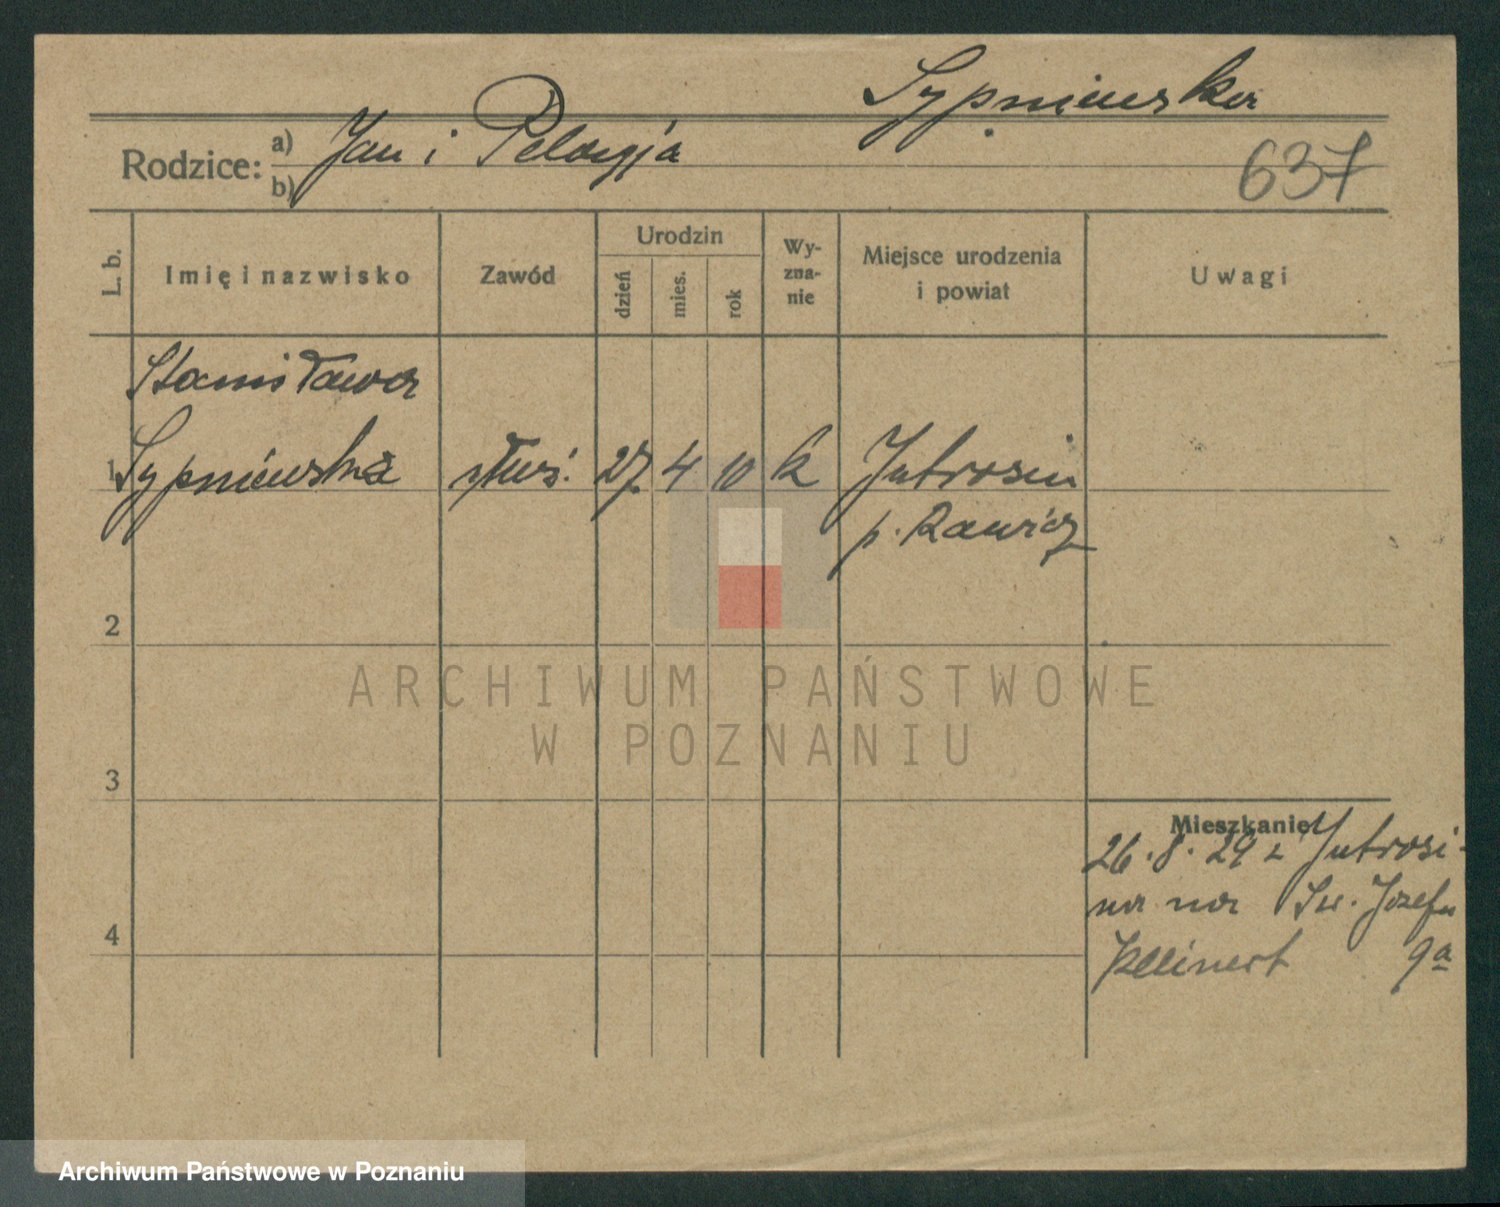 Sypniewska
Rodzice: a) Jan i Pelagja
b)
637
L. b.
Imię i nazwisko
Zawód
Urodzin
dzień
mies.
rok
Wy-
zna-
nie
Miejsce urodzenia
i powiat
Uwagi
Stanisława
1 Sypniewska służ. 27 4 10 k Jutrosin
p. Rawicz
2
3
4
Mieszkanie
26.8.29 z Jutrosi-
na na Św. Józefa
Kleinert 9a
ARCHIWUM PAŃSTWOWE
W POZNANIU
Archiwum Państwowe w Poznaniu